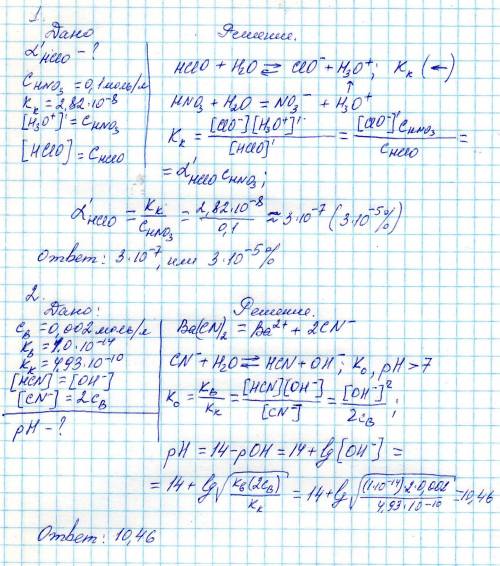 1.
Дано
α'HClO - ?
CHNO₃ = 0,1 моль/л
Kк = 2,82·10⁻⁸
[H₃O⁺]' = CHNO₃
[HClO]' = CHClO
Решение.
HClO + H₂O ⇄ ClO⁻ + H₃O⁺; Kк (←)
↑
HNO₃ + H₂O = NO₃⁻ + H₃O⁺
Kк = [ClO⁻]'[H₃O⁺]' / [HClO]' = [ClO⁻]' CHNO₃ / CHClO =
= α'HClO CHNO₃;
α'HClO = Kк / CHNO₃ = 2,82·10⁻⁸ / 0,1 ≈ 3·10⁻⁷ (3·10⁻⁵%)
Ответ: 3·10⁻⁷, или 3·10⁻⁵%
2.
Дано:
cв = 0,002 моль/л
Kв = 1,0·10⁻¹⁴
Kк = 4,93·10⁻¹⁰
[HCN] = [OH⁻]
[CN⁻] = 2cв
pH - ?
Решение.
Ba(CN)₂ = Ba²⁺ + 2CN⁻
CN⁻ + H₂O ⇄ HCN + OH⁻; K₀, pH > 7
K₀ = Kв / Kк = [HCN][OH⁻] / [CN⁻] = [OH⁻]² / 2cв;
pH = 14 - pOH = 14 + lg[OH⁻] =
= 14 + lg √(Kв(2cв) / Kк) = 14 + lg √((1·10⁻¹⁴)·2·0,002 / 4,93·10⁻¹⁰) = 10,46
Ответ: 10,46